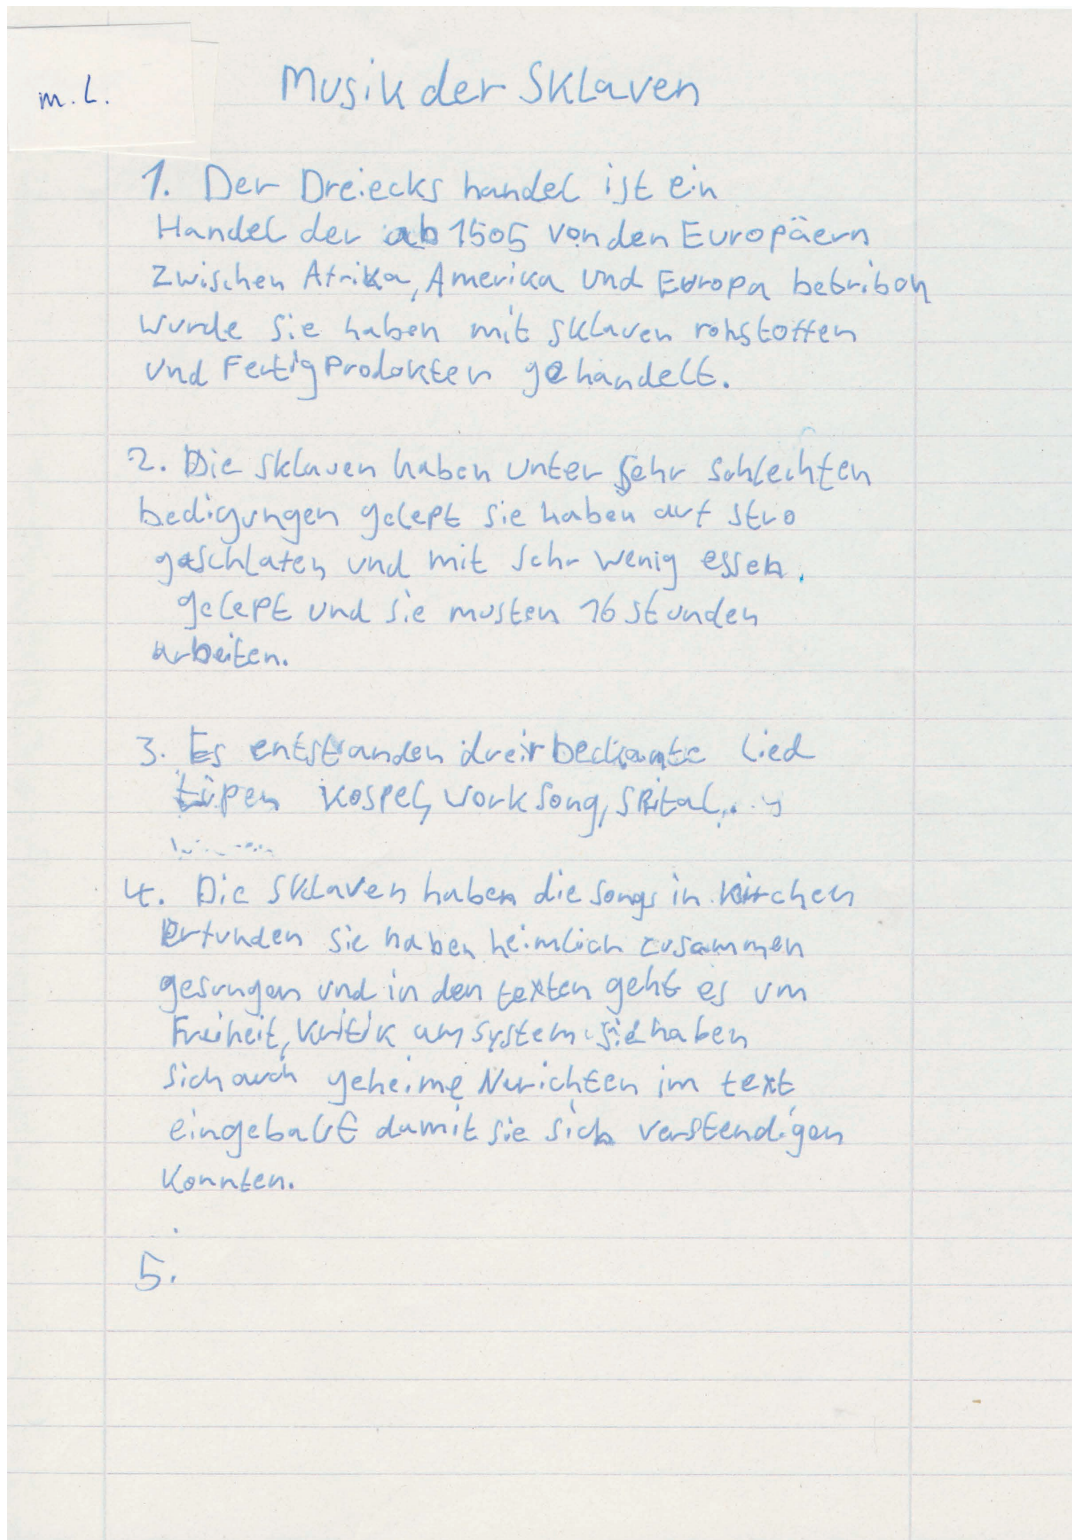 m. L.
Musik der Sklaven
1. Der Dreiecks handel ist ein
Handel der ab 1505 von den Europäern
zwischen Afrika, Amerika und Europa betriben
wurde sie haben mit sklaven rohstoffen
und Fertig Produkten gehandelt.
2. Die sklaven haben unter sehr schlechten
bedigungen gelept sie haben auf stro
geschlafen und mit sehr wenig essen.
gelept und sie musten 16 stunden
arbeiten.
3. Es entstanden drei bekannte lied
tüpen kospel, work song, spital
4. Die Sklaven haben die songs in kirchen
erfunden sie haben heimlich zusammen
gesungen und in den texten geht es um
Freiheit, kritik am system sie haben
sich auch geheime Narichten im text
eingebaut damit sie sich verstendigen
konnten.
5.